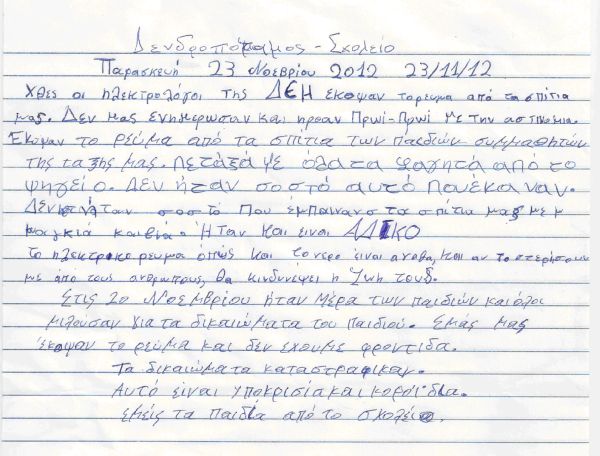 Δενδροπόταμος - Σχολείο
Παρασκευή 23 Νοεβρίου 2012 23/11/12
Χθες οι ηλεκτρολόγοι της ΔΕΗ έκοψαν το ρεύμα από τα σπίτια
μας. Δεν μας ενημέρωσαν και ήρθαν πρωί-πρωί με την αστυνομία.
Έκοψαν το ρεύμα από τα σπίτια των παιδιών συμμαθητών
της τάξης μας. Πετάξαμε όλα τα φαγητά από το
ψηγείο. Δεν ήταν σοστό αυτό που έκαναν.
Δεν ήταν σοστό που έμπαιναν στα σπίτια μας με
μαγκιά και βία. Ήταν και είναι ΑΔΙΚΟ
το ηλεκτρικό ρεύμα όπως και το νερό είναι αγαθά, και αν το στερήσουν
με από τους ανθρώπους, θα κινδυνέψει η ζωή τους.
Στις 20 Νοεμβρίου ήταν μέρα των παιδιών και όλοι
μιλούσαν για τα δικαιώματα του παιδιού. Εμάς μας
έκοψαν το ρεύμα και δεν έχουμε φροντίδα.
Τα δικαιώματα καταστράφικαν.
Αυτό είναι υποκρισία και κοροϊδία.
Εμείς τα παιδιά από το σχολείο.